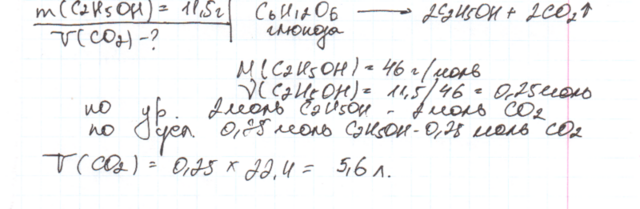 m(C2H5OH) = 11,5г C6H12O6 ⟶ 2C2H5OH + 2CO2↑
V(CO2) - ? глюкоза
M(C2H5OH) = 46 г/моль
V(C2H5OH) = 11,5/46 = 0,25 моль
по ур. 2 моль C2H5OH - 2 моль CO2
по усл. 0,25 моль C2H5OH - 0,25 моль CO2
V(CO2) = 0,25 × 22,4 = 5,6 л.